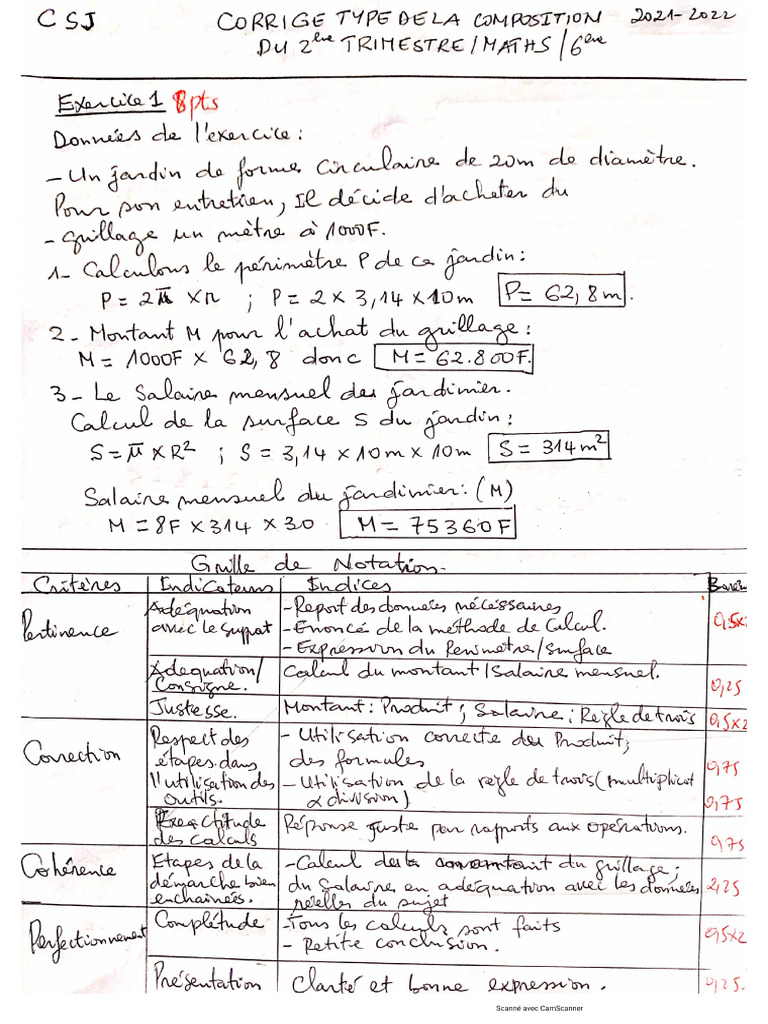 CSJ CORRIGE TYPE DE LA COMPOSITION 2021-2022
DU 2ème TRIMESTRE / MATHS / 6ème
Exercice 1 8pts
Données de l'exercice :
- Un jardin de forme circulaire de 20m de diamètre.
Pour son entretien, Il décide d'acheter du
- grillage un mètre à 1000F.
1- Calculons le périmètre P de ce jardin :
P = 2π × R ; P = 2 × 3,14 × 10m P = 62,8m.
2 - Montant M pour l'achat du grillage :
M = 1000F × 62,8 donc M = 62.800F.
3 - Le Salaire mensuel du jardinier.
Calcul de la surface S du jardin :
S = π × R² ; S = 3,14 × 10m × 10m S = 314m²
Salaire mensuel du jardinier : (M)
M = 8F × 314 × 30 M = 75360F
Grille de Notation.
Critères Indicateurs Indices Barèm
Pertinence Adéquation avec le support
- Report des données nécéssaires
- Enoncé de la méthode de Calcul.
- Expression du Périmètre/Surface
0,5x2
Adequation/ Consigne.
Calcul du montant / Salaire mensuel.
0,25
Justesse. Montant : Produit ; Salaire : Règle de trois 0,5x2
Correction Respect des étapes dans l'utilisation des outils.
- Utilisation correcte du Produit;
des formules
0,75
- Utilisation de la règle de trois (multiplicat
& division)
0,75
Exactitude des calculs
Réponse juste par rapports aux opérations.
0,75
Cohérence Etapes de la démarche bien enchainées.
- Calcul du montant du grillage ;
du Salaire en adéquation avec les données
réelles du sujet
2,25
Perfectionnement Complétude
- Tous les calculs sont faits
- Petite conclusion.
0,5x2
Présentation Clarté et bonne expression. 0,25.
Scanné avec CamScanner